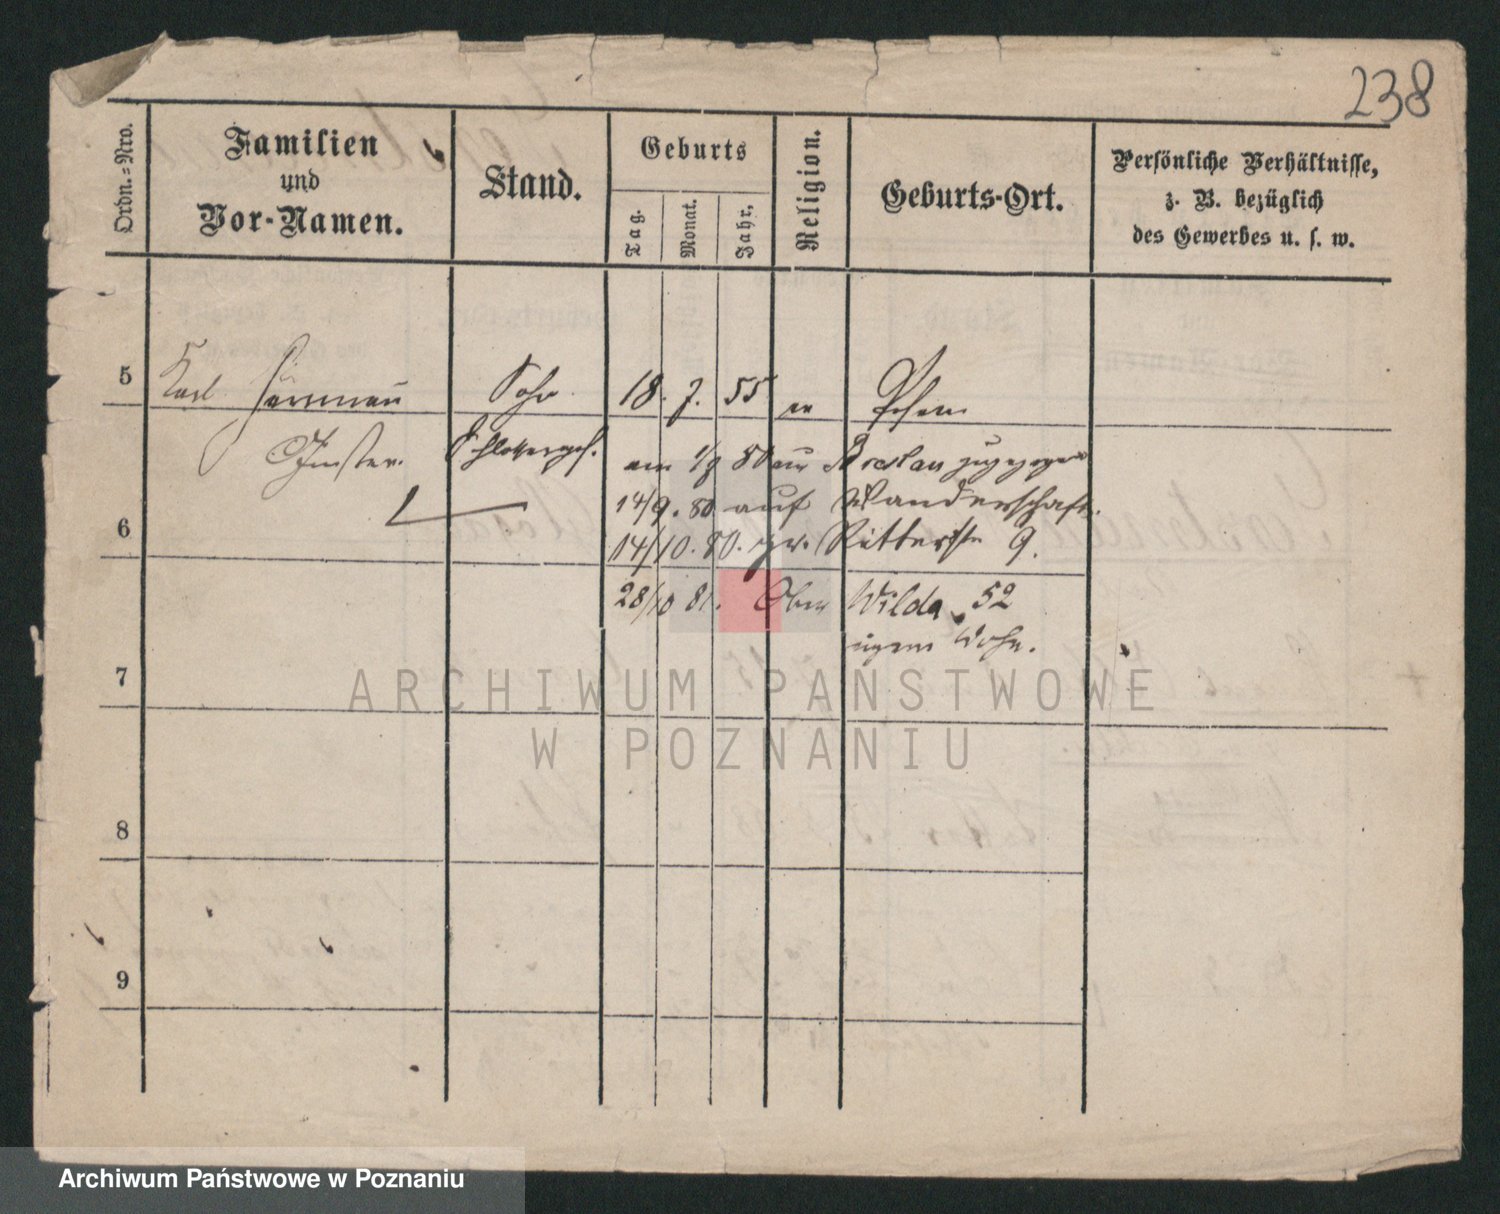 238
Ordn.=Nro.
Familien
und
Vor-Namen.
Stand.
Geburts
Tag.
Monat.
Jahr.
Religion.
Geburts-Ort.
Persönliche Verhältnisse,
z. B. bezüglich
des Gewerbes u. s. w.
5 Karl Hermann Sohn 18. 7. 55 Posen
Schlosserges. am 80 aus Breslau zugezogen
14/9. 80 auf Wanderschaft.
6 14/10. 80. Ritterstr 9.
28/10 81. Ober Wilda 52
7
ARCHIWUM PAŃSTWOWE
W POZNANIU
8
9
Archiwum Państwowe w Poznaniu